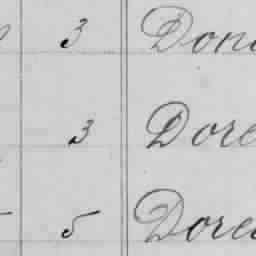 3 Don
3 Dore
5 Dore